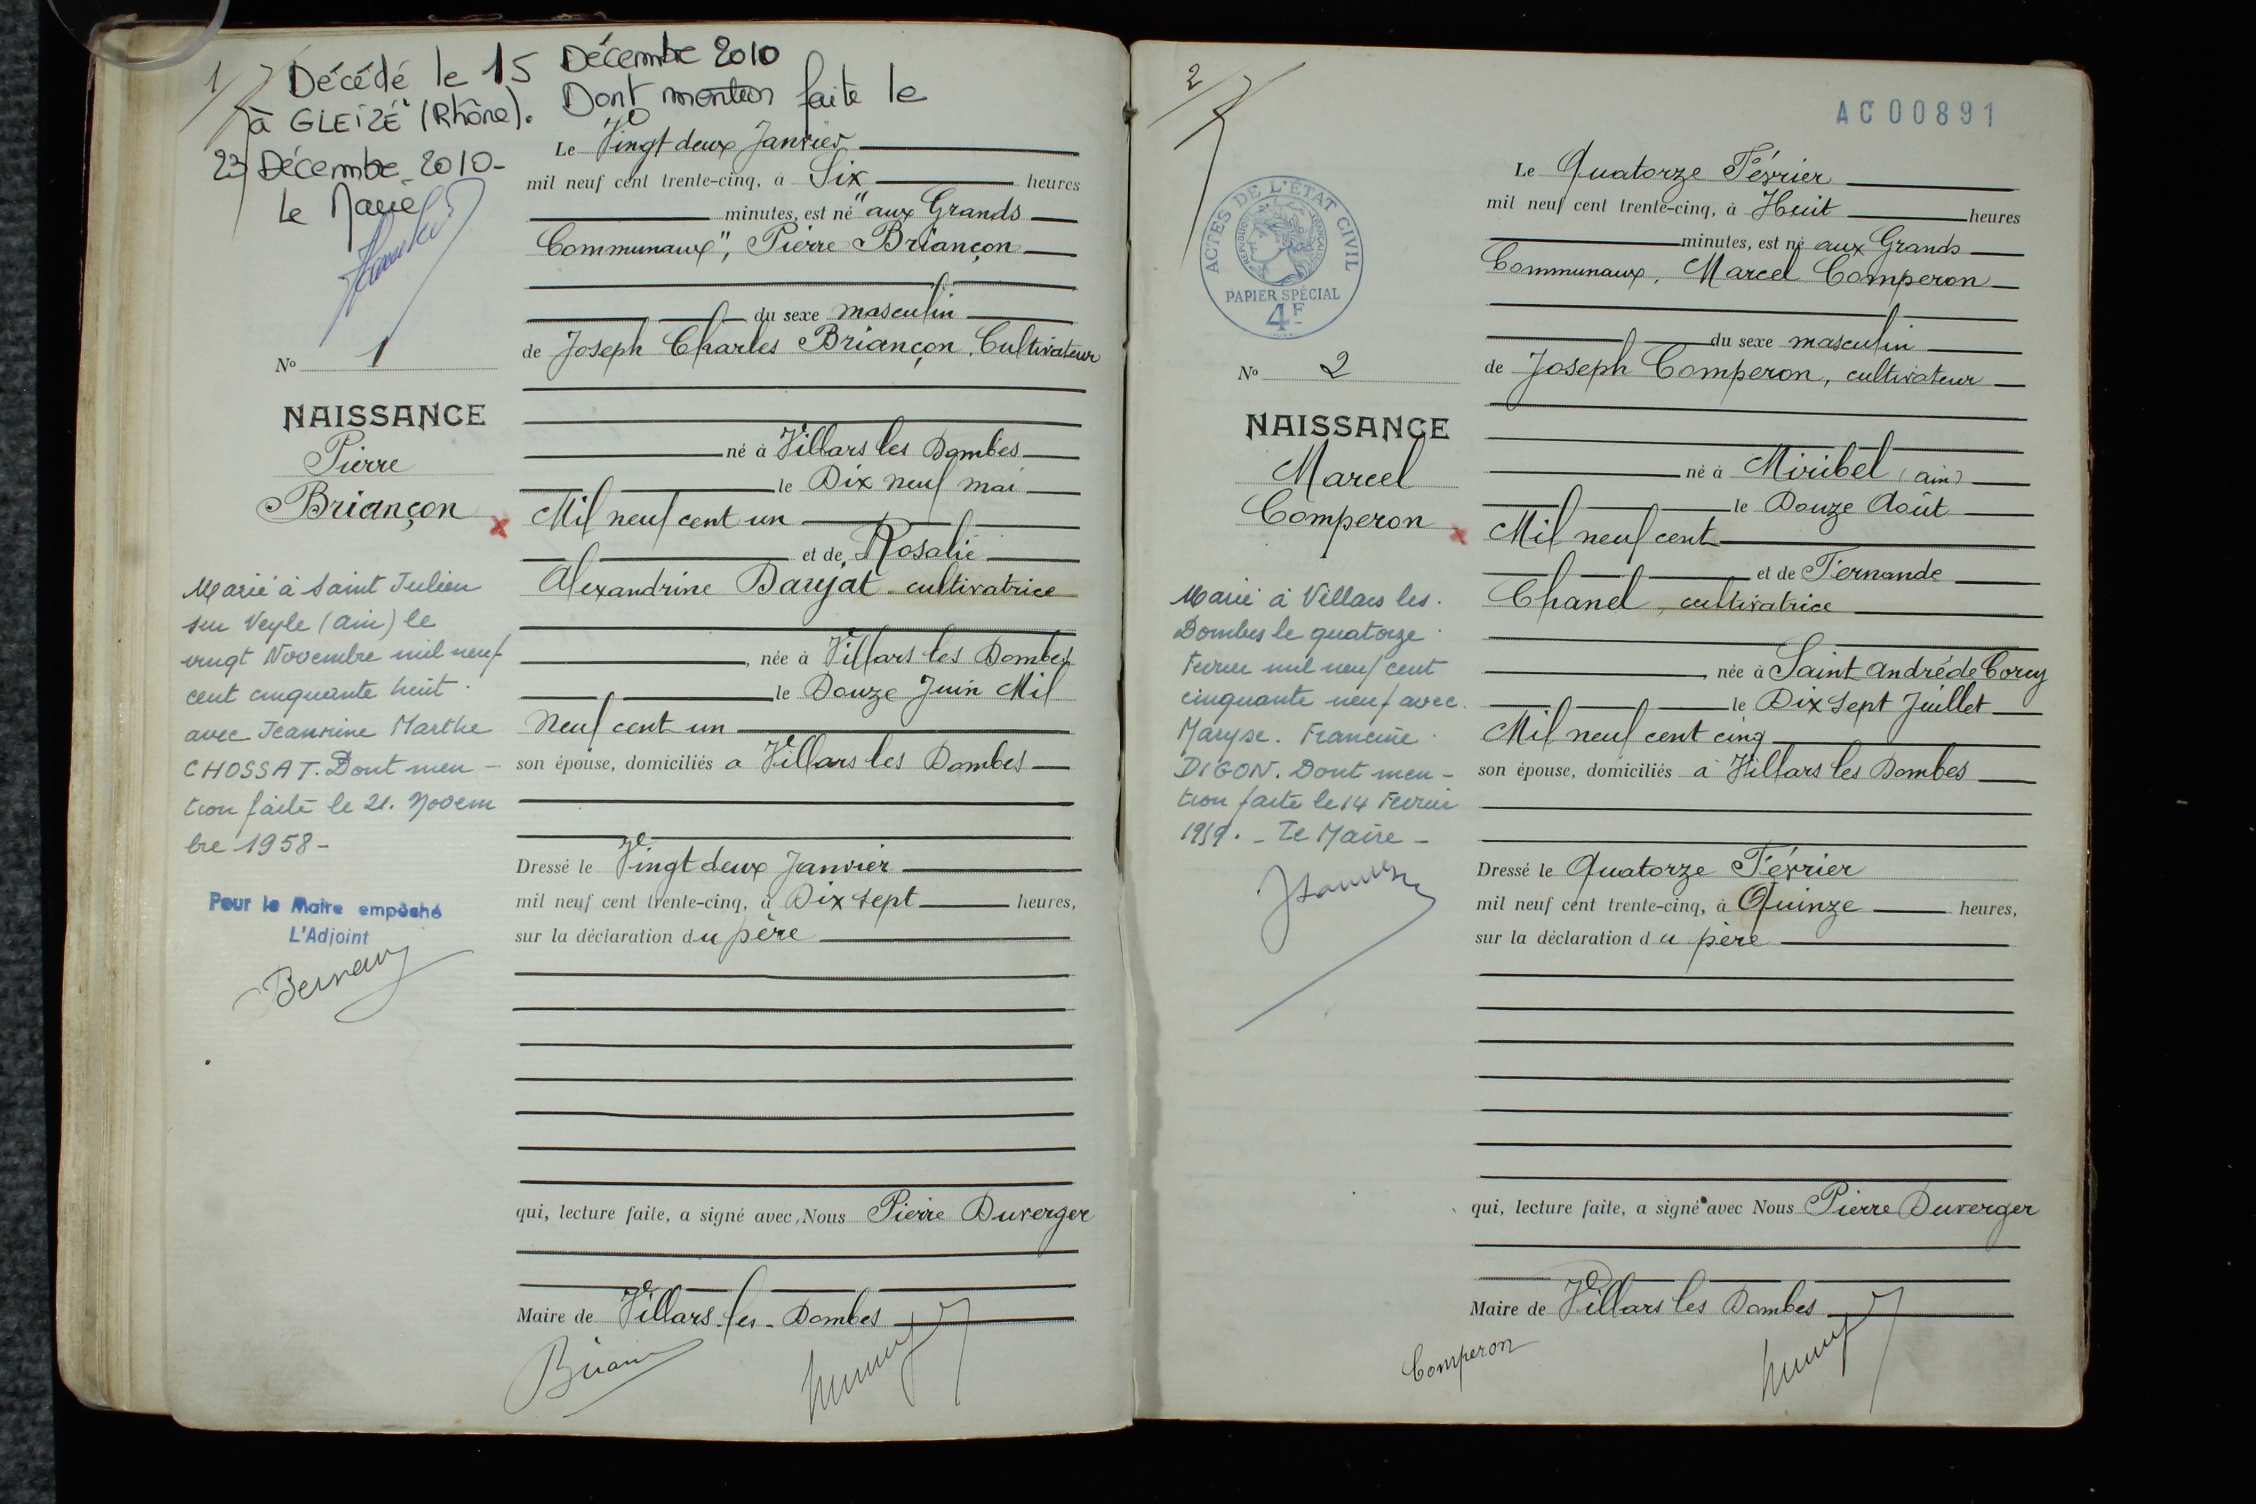 1
Décédé le 15 Décembre 2010
à GLEIZÉ (Rhône). Dont mention faite le
23 Décembre 2010-
Le Maire
Le Vingt deux Janvier
mil neuf cent trente-cinq, à Six heures
minutes, est né "aux Grands
Communaux", Pierre Briançon
du sexe masculin
de Joseph Charles Briançon, Cultivateur
né à Villars les Dombes
le Dix neuf mai
Mil neuf cent un
et de Rosalie
Alexandrine Baujat cultivatrice
née à Villars les Dombes
le Douze Juin Mil
Neuf cent un
son épouse, domiciliés à Villars les Dombes
Dressé le Vingt deux Janvier
mil neuf cent trente-cinq, à Dix sept heures,
sur la déclaration du père
qui, lecture faite, a signé avec Nous Pierre Duverger
Maire de Villars-les-Dombes
No 1
NAISSANCE
Pierre
Briançon
Marié à Saint Julien
sur Veyle (Ain) le
vingt Novembre mil neuf
cent cinquante huit.
avec Jeannine Marthe
CHOSSAT. Dont men-
tion faite le 21. Novem
bre 1958-
Pour le Maire empêché
L'Adjoint
2
AC00891
ACTES DE L'ÉTAT CIVIL
PAPIER SPÉCIAL
4F
Le Quatorze Février
mil neuf cent trente-cinq, à Huit heures
minutes, est né aux Grands
Communaux, Marcel Comperon
du sexe masculin
de Joseph Comperon, cultivateur
né à Miribel (ain)
le Douze Août
Mil neuf cent
et de Fernande
Chanel, cultivatrice
née à Saint André de Corcy
le Dix sept Juillet
Mil neuf cent cinq
son épouse, domiciliés à Villars les Dombes
Dressé le Quatorze Février
mil neuf cent trente-cinq, à Quinze heures,
sur la déclaration du père
qui, lecture faite, a signé avec Nous Pierre Duverger
Maire de Villars les Dombes
Comperon
No 2
NAISSANCE
Marcel
Comperon
Marié à Villars les.
Dombes le quatorze
Fevrier mil neuf cent
cinquante neuf avec
Maryse. Francine.
DIGON. Dont men-
tion faite le 14 Fevrier
1959. - Le Maire -